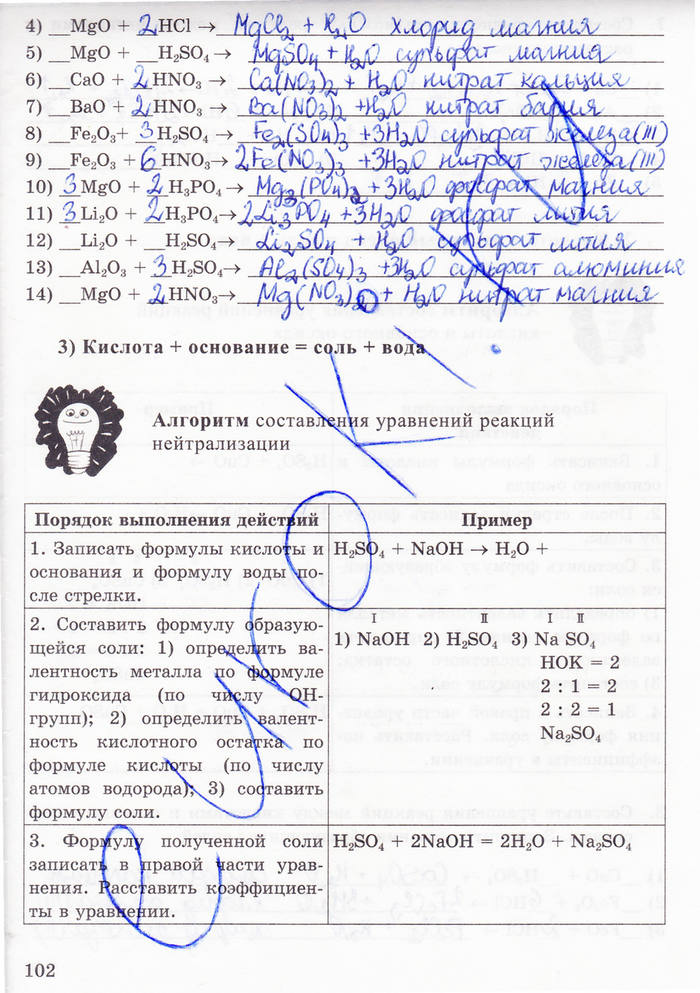 4) __MgO + 2HCl → MgCl₂ + H₂O хлорид магния
5) __MgO + __H₂SO₄ → MgSO₄ + H₂O сульфат магния
6) __CaO + 2HNO₃ → Ca(NO₃)₂ + H₂O нитрат кальция
7) __BaO + 2HNO₃ → Ba(NO₃)₂ + H₂O нитрат бария
8) __Fe₂O₃ + 3H₂SO₄ → Fe₂(SO₄)₃ + 3H₂O сульфат железа(III)
9) __Fe₂O₃ + 6HNO₃ → 2Fe(NO₃)₃ + 3H₂O нитрат железа(III)
10) 3MgO + 2H₃PO₄ → Mg₃(PO₄)₂ + 3H₂O фосфат магния
11) 3Li₂O + 2H₃PO₄ → 2Li₃PO₄ + 3H₂O фосфат лития
12) __Li₂O + __H₂SO₄ → Li₂SO₄ + H₂O сульфат лития
13) __Al₂O₃ + 3H₂SO₄ → Al₂(SO₄)₃ + 3H₂O сульфат алюминия
14) __MgO + 2HNO₃ → Mg(NO₃)₂ + H₂O нитрат магния
3) Кислота + основание = соль + вода
Алгоритм составления уравнений реакций
нейтрализации
Порядок выполнения действий Пример
1. Записать формулы кислоты и
основания и формулу воды по-
сле стрелки.
H₂SO₄ + NaOH → H₂O +
2. Составить формулу образую-
щейся соли: 1) определить ва-
лентность металла по формуле
гидроксида (по числу OH-
групп); 2) определить валент-
ность кислотного остатка по
формуле кислоты (по числу
атомов водорода); 3) составить
формулу соли.
I II I II
1) NaOH 2) H₂SO₄ 3) Na SO₄
НОК = 2
2 : 1 = 2
2 : 2 = 1
Na₂SO₄
3. Формулу полученной соли
записать в правой части урав-
нения. Расставить коэффициен-
ты в уравнении.
H₂SO₄ + 2NaOH = 2H₂O + Na₂SO₄
102